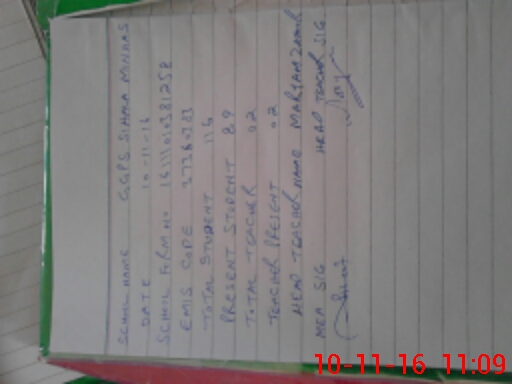 SCHOOL NAME GGPS SIHALA MINHAS
DATE 10-11-16
SCHOOL FIRM NO
EMIS CODE
TOTAL STUDENT 116
PRESENT STUDENT 89
TOTAL TEACHER 02
TEACHER PRESENT 02
HEAD TEACHER NAME MARYAM
MEA SIG HEAD TEACHER SIG
10-11-16 11:09